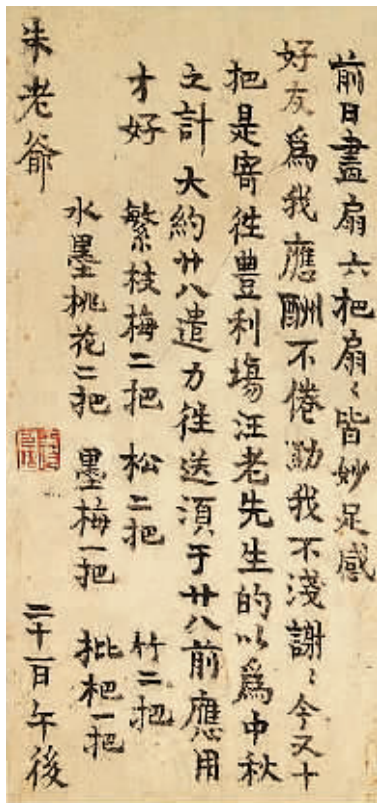 前日畫扇六把扇〻皆妙足感
好友爲我應酬不倦助我不淺謝〻今又十
把是寄徃豐利塲汪老先生的以爲中秋
之計大約廿八遣力徃送湏于廿八前應用
才好 繁枝梅二把 松二把 竹二把
水墨桃花二把 墨梅一把 枇杷一把
朱老爺 二十一日午後